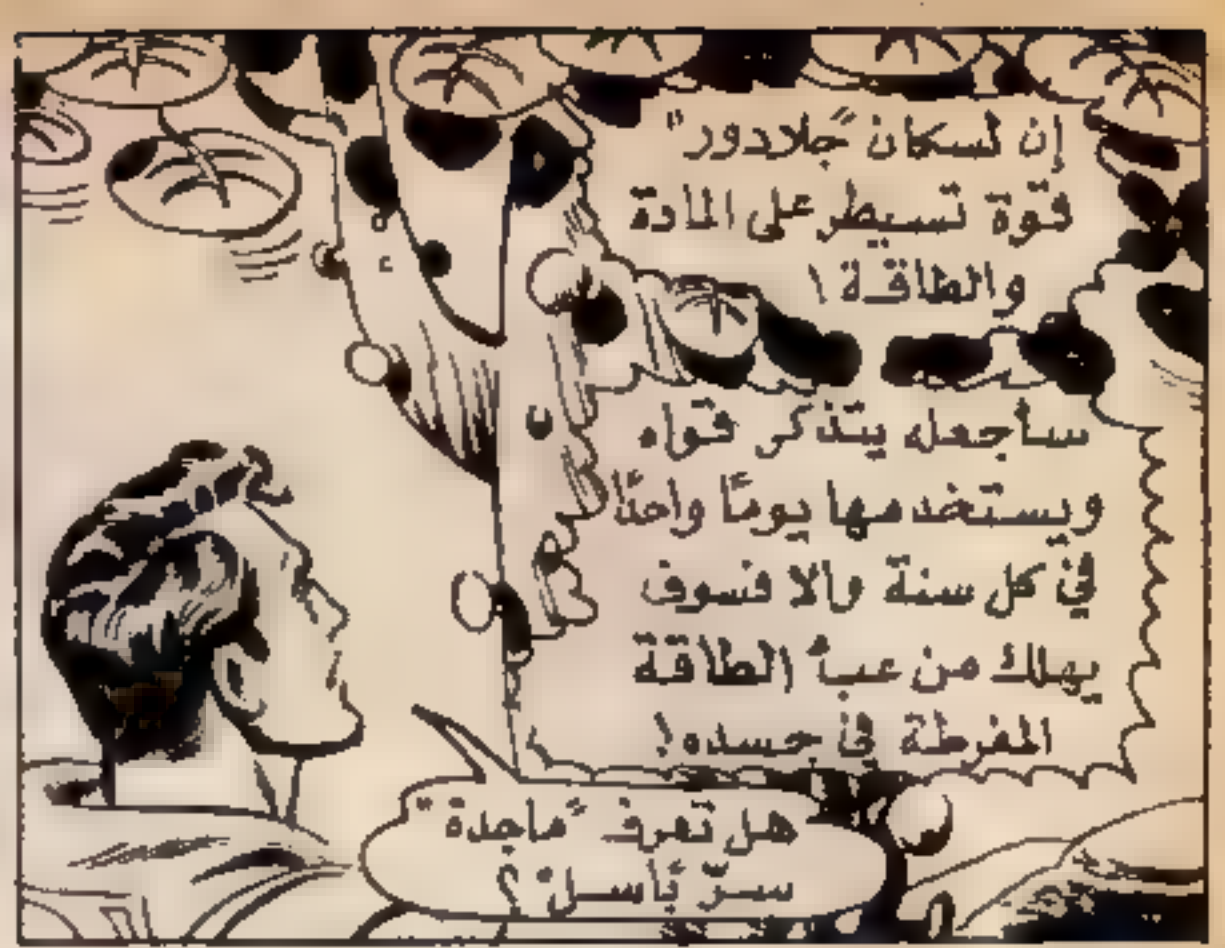 إن لسكان "جلادور"
قوة تسيطر على المادة
والطاقة !
سأجعله يتذكر قواه
ويستخدمها يومًا واحدًا
في كل سنة والا فسوف
يهلك من عبء الطاقة
المفرطة في جسده !
هل تعرف "ماجدة"
سرّ "باسل" ؟